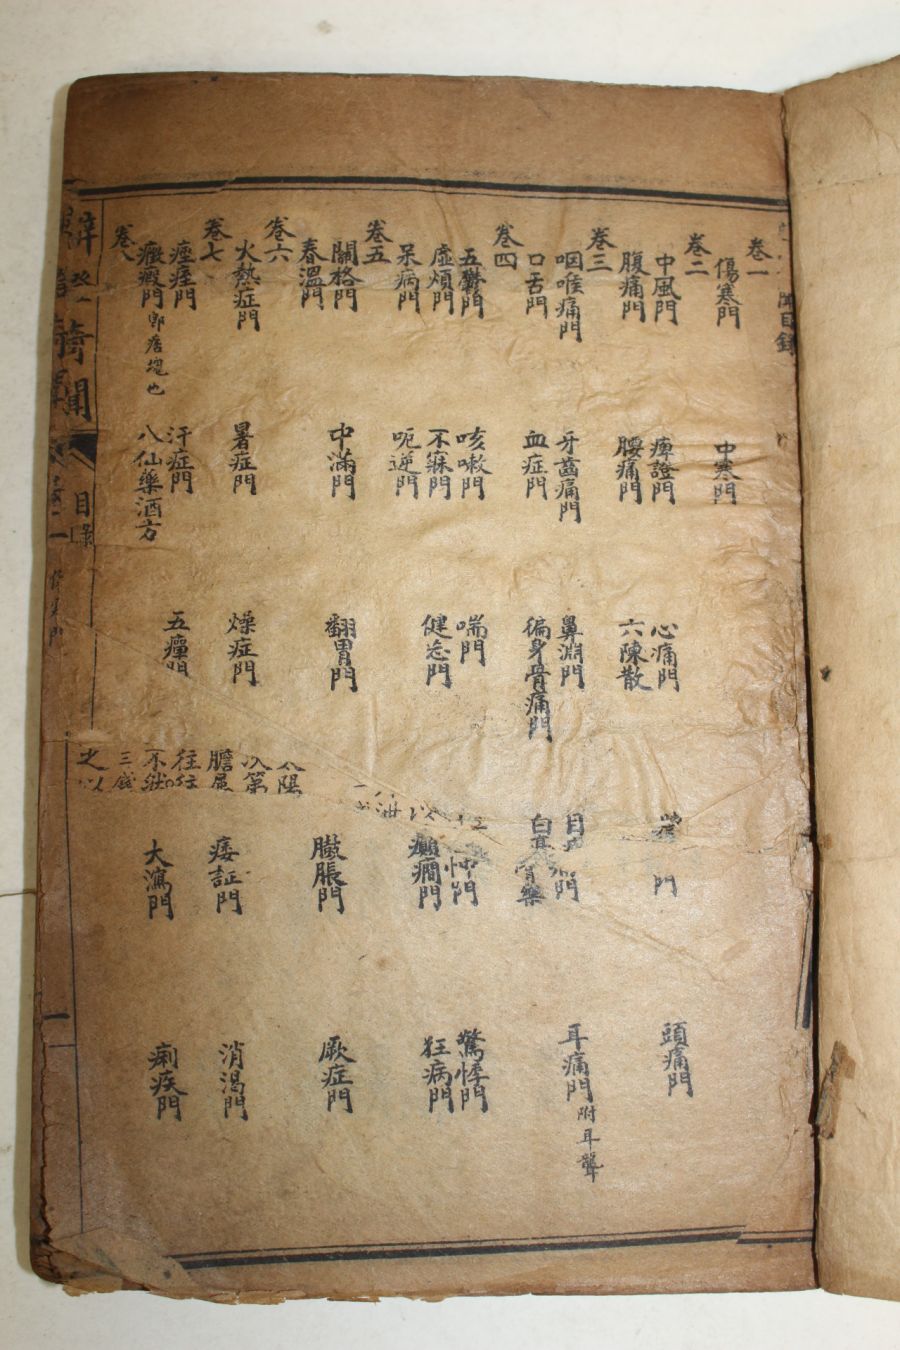 目錄
卷一
傷寒門 中寒門
卷二
中風門 痺證門 心痛門 門 頭痛門
腹痛門 腰痛門 六陳散
卷三
咽喉痛門 牙齒痛門 鼻淵門 目 門 耳痛門 附耳聾
口舌門 血症門 徧身骨痛門 白 藥
卷四
五鬱門 咳嗽門 喘門 忡門 驚悸門
虛煩門 不寐門 健忘門 癲癇門 狂病門
呆病門 呃逆門
卷五
關格門 中滿門 翻胃門 臌脹門 厥症門
春溫門
卷六
火熱症門 暑症門 燥症門 痿証門 消渴門
卷七
痙痓門 汗症門 五癉門 大瀉門 痢疾門
癥瘕門 即痞塊也 八仙藥酒方
卷八
太陽
次第
膽屈
往往
不然
三錢
之以
奇聞
目錄
一